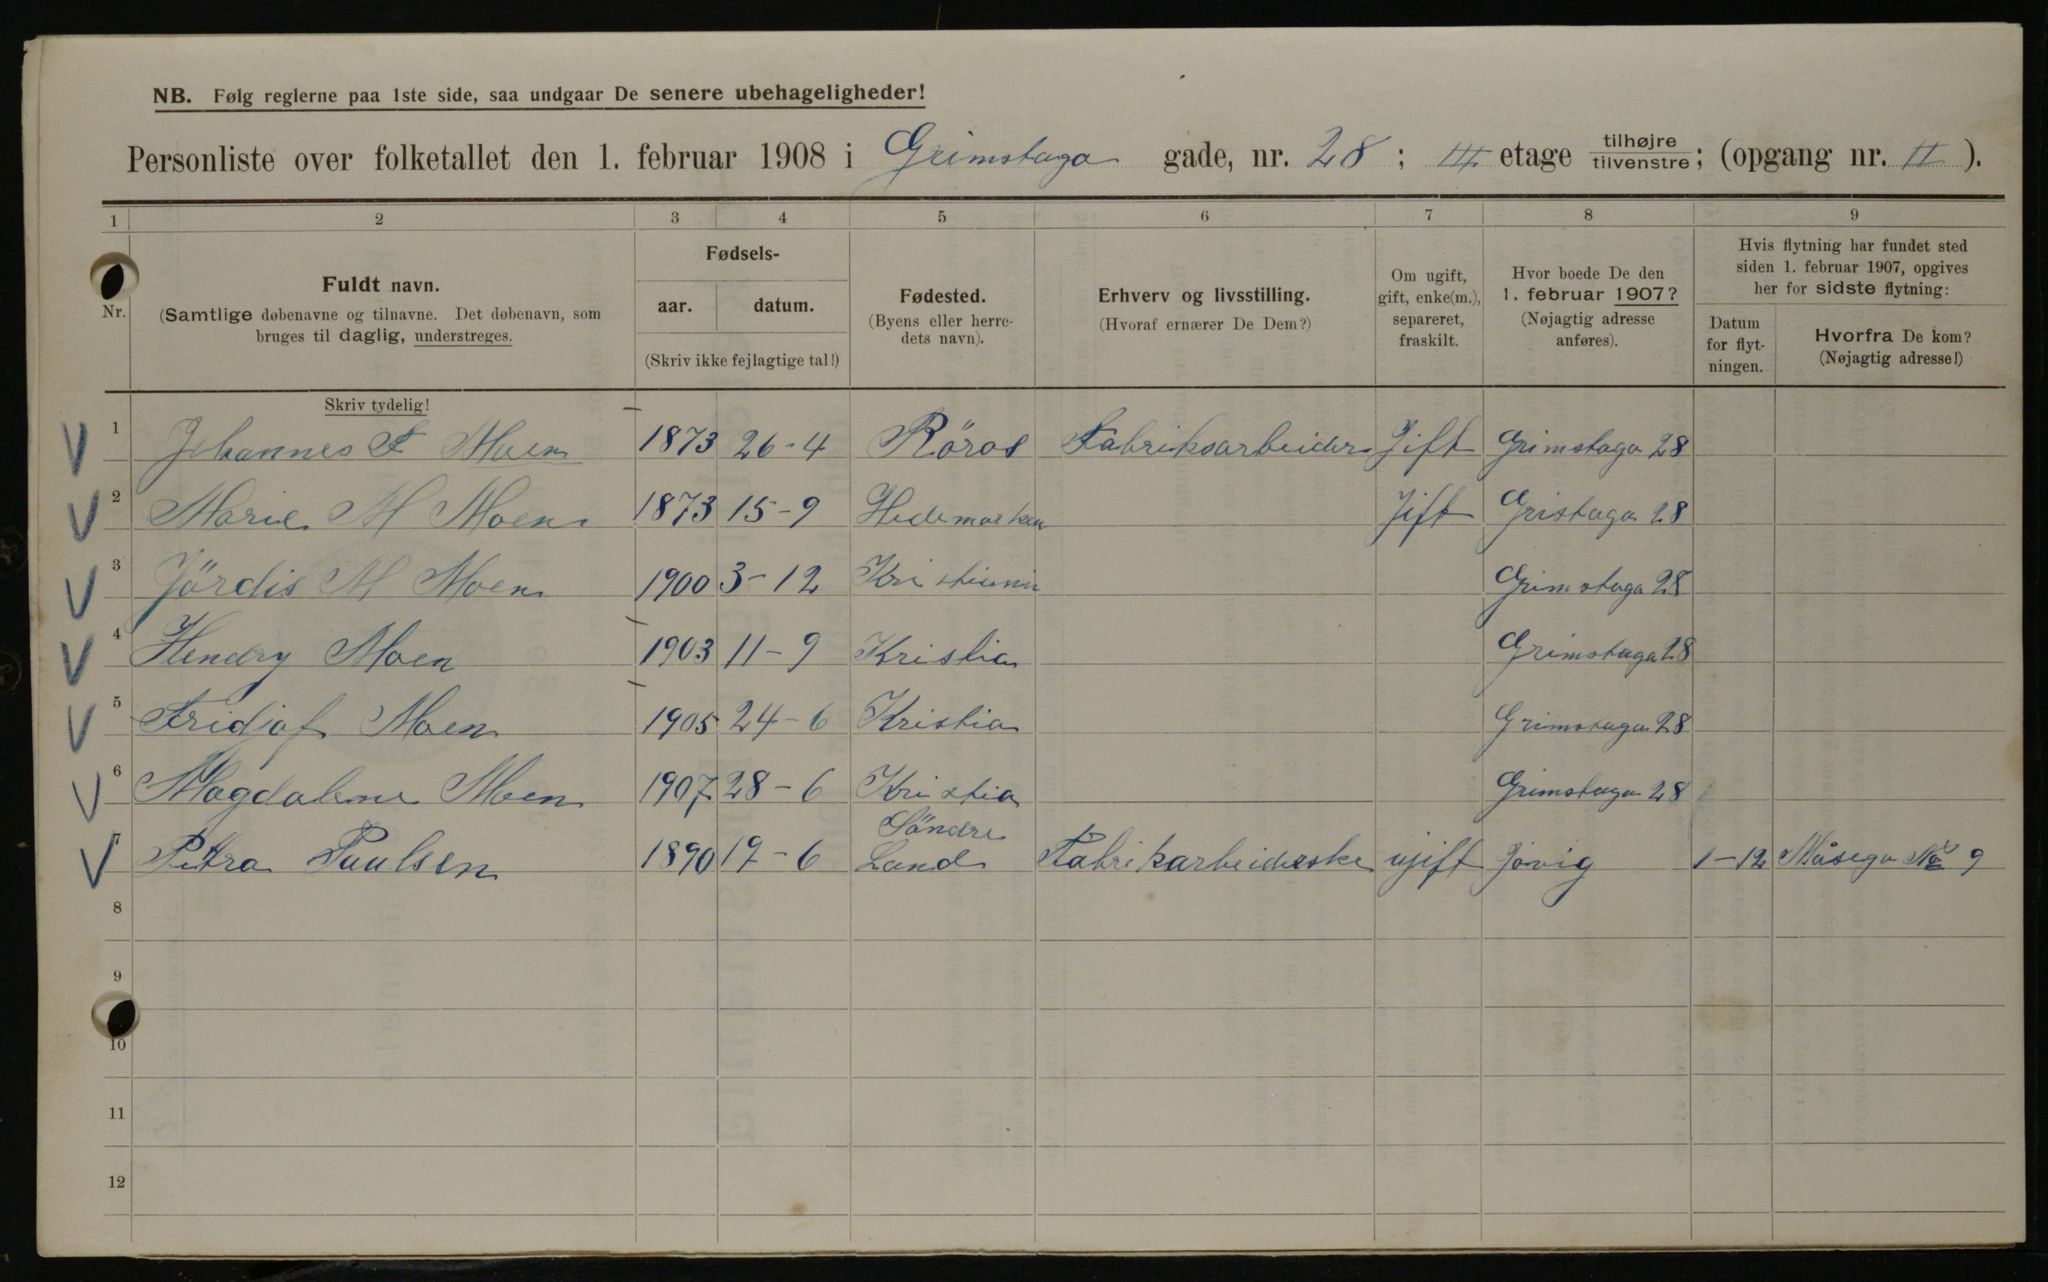 NB. Følg reglerne paa 1ste side, saa undgaar De senere ubehageligheder!
Personliste over folketallet den 1. februar 1908 i Grimstaga gade, nr. 28; III etage tilhøjre tilvenstre; (opgang nr. II).
1 2 3 4 5 6 7 8 9
Nr.
Fuldt navn.
(Samtlige døbenavne og tilnavne. Det døbenavn, som
bruges til daglig, understreges.
Fødsels-
aar. datum.
(Skriv ikke fejlagtige tal!)
Fødested.
(Byens eller herre-
dets navn).
Erhverv og livsstilling.
(Hvoraf ernærer De Dem?)
Om ugift,
gift, enke(m.),
separeret,
fraskilt.
Hvor boede De den
1. februar 1907?
(Nøjagtig adresse
anføres).
Hvis flytning har fundet sted
siden 1. februar 1907, opgives
her for sidste flytning:
Datum
for flyt-
ningen.
Hvorfra De kom?
(Nøjagtig adresse!)
Skriv tydelig!
1 Johannes F Moen 1873 26-4 Röros Fabriksarbeider Gift Grimstaga 28
2 Marie M Moen 1873 15-9 Hedemarken Gift Gristaga 28
3 Jördis M Moen 1900 3-12 Kristiania Grimstaga 28
4 Hendry Moen 1903 11-9 Kristia Grimstaga 28
5 Fridjof Moen 1905 24-6 Kristia Grimstaga 28
6 Magdalene Moen 1907 28-6 Kristia Grimstaga 28
7 Petra Paulsen 1890 19-6 Söndre Land Fabrikarbeiderske ugift Jövig 1-12 Måsega No 9
8
9
10
11
12